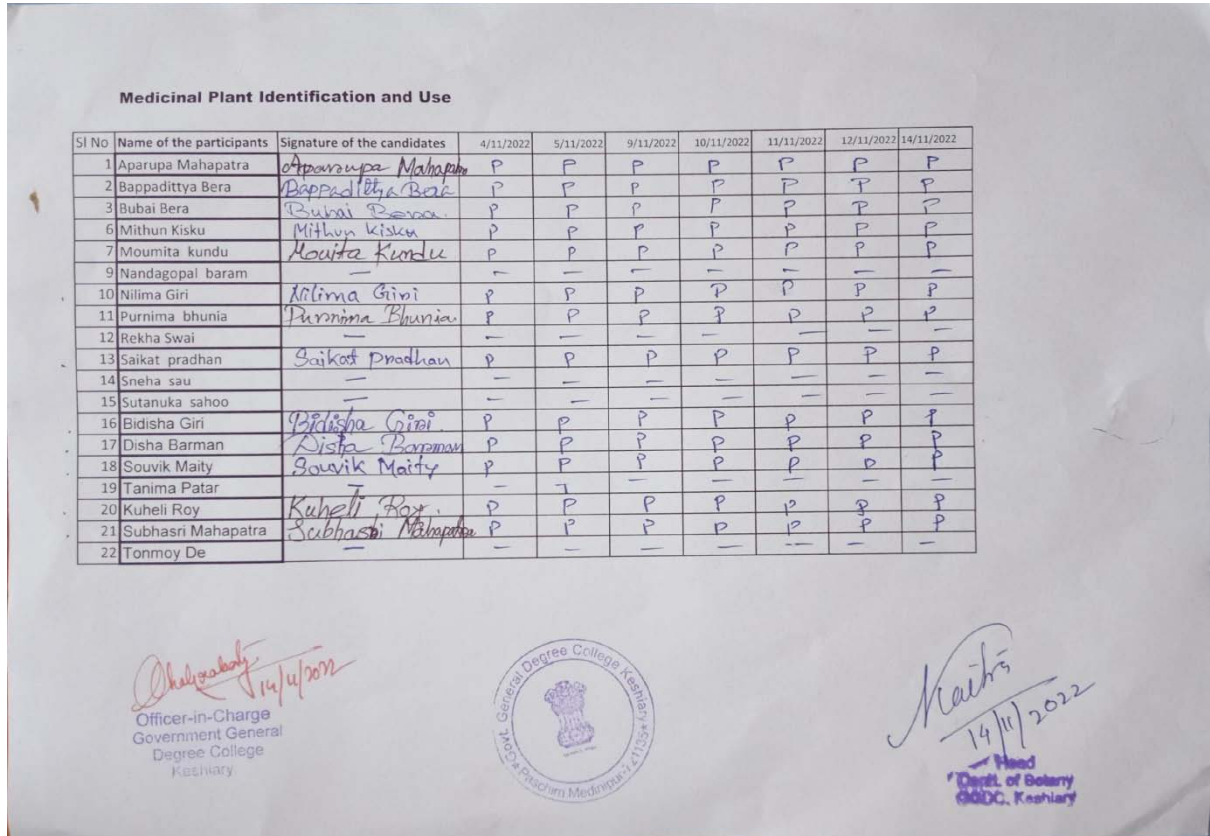 Medicinal Plant Identification and Use
Sl No Name of the participants Signature of the candidates 4/11/2022 5/11/2022 9/11/2022 10/11/2022 11/11/2022 12/11/2022 14/11/2022
1 Aparupa Mahapatra Aparupa Mahapatra P P P P P P P
2 Bappadittya Bera Bappadittya Bera P P P P P P P
3 Bubai Bera Bubai Bera. P P P P P P P
6 Mithun Kisku Mithun Kisku P P P P P P P
7 Moumita kundu Mouita Kundu P P P P P P P
9 Nandagopal baram — — — — — — — —
10 Nilima Giri Nilima Giri P P P P P P P
11 Purnima bhunia Purnima Bhunia. P P P P P P P
12 Rekha Swai — — — — — — — —
13 Saikat pradhan Saikat Pradhan P P P P P P P
14 Sneha sau — — — — — — — —
15 Sutanuka sahoo — — — — — — — —
16 Bidisha Giri Bidisha Giri. P P P P P P P
17 Disha Barman Disha Barman P P P P P P P
18 Souvik Maity Souvik Maity P P P P P P P
19 Tanima Patar — — — — — — —
20 Kuheli Roy Kuheli Roy. P P P P P P P
21 Subhasri Mahapatra Subhasri Mahapatra P P P P P P P
22 Tonmoy De — — — — — — — —
14/11/2022
Officer-in-Charge
Government General
Degree College
Keshiary
Govt. General Degree College Keshiary
Paschim Medinipur-721135
Maitra
14/11/2022
Head
Deptt. of Botany
GGDC, Keshiary